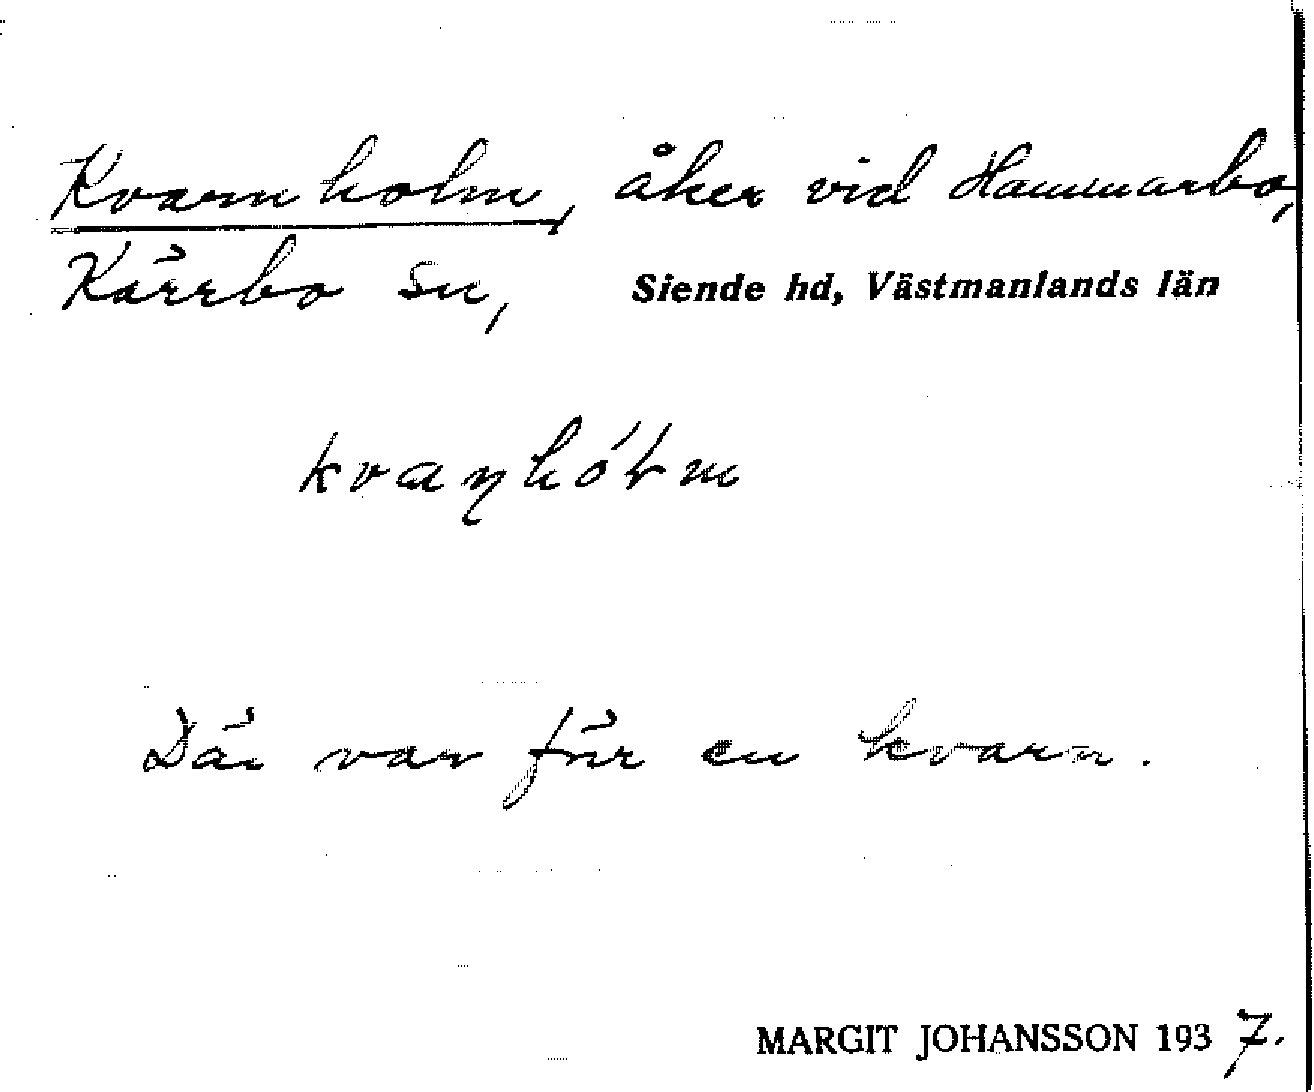 Kvarnholm, åker vid Hammarbo,
Kärrbo sn, Siende hd, Västmanlands län
kvaɳhóɫm
Där var för en kvarn.
MARGIT JOHANSSON 1937.